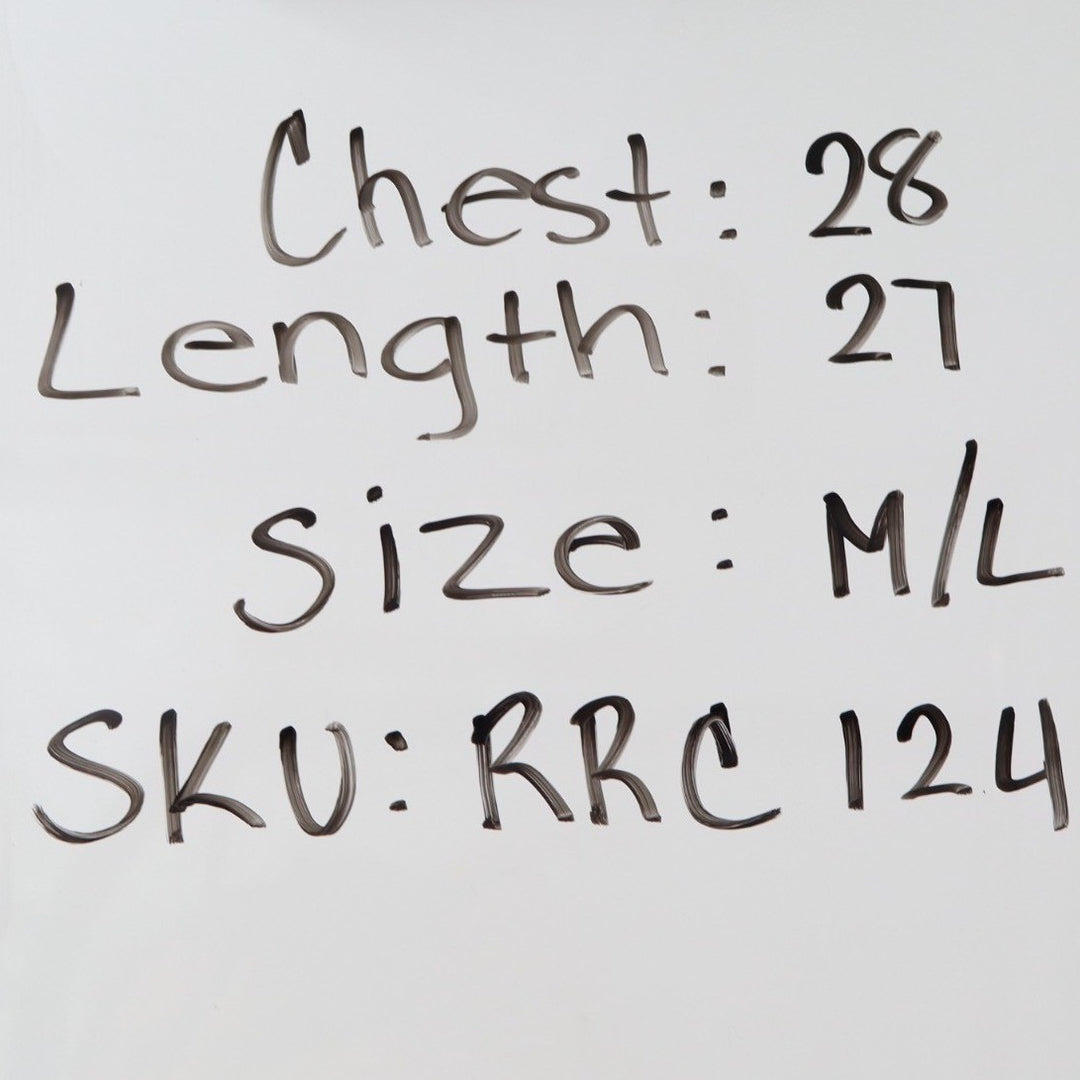 Chest: 28
Length: 27
Size: M/L
SKU: RRC 124